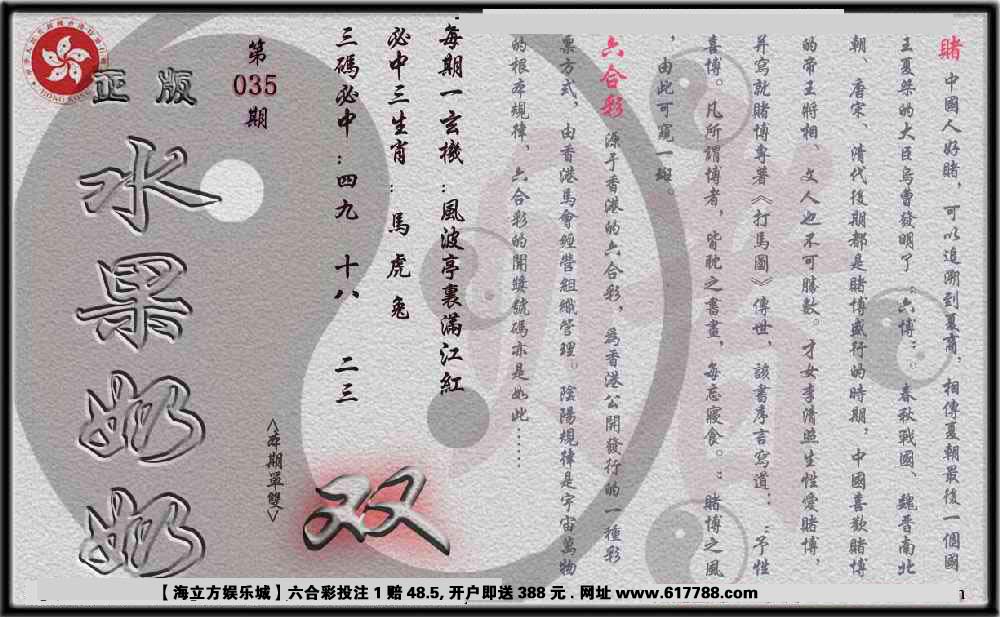 賭 中國人好賭，可以追溯到夏商；相傳夏朝最後一個國
王夏桀的大臣烏曹發明了“六博”；春秋戰國、魏晋南北
朝、唐宋、清代後期都是賭博盛行的時期，中國喜歡賭博
的帝王將相、文人也不可勝數。才女李清照生性愛賭博，
并寫就賭博專著《打馬圖》傳世，該書序言寫道：“予性
喜博。凡所謂博者，皆耽之晝晝，每忘寢食。”；賭博之風
，由此可窺一斑。
六合彩 源于香港的六合彩，為香港公開發行的一種彩
票方式，由香港馬會經營組織管理。陰陽規律是宇宙萬物
的根本規律，六合彩的開獎號碼亦是如此……
每期一玄機：風波亭裏滿江紅
必中三生肖：馬 虎 兔
三碼必中：四九 十八 二三
第
035
期
正版
水果奶奶
<本期單雙>
双
【海立方娱乐城】六合彩投注1赔48.5,开户即送388元.网址www.617788.com